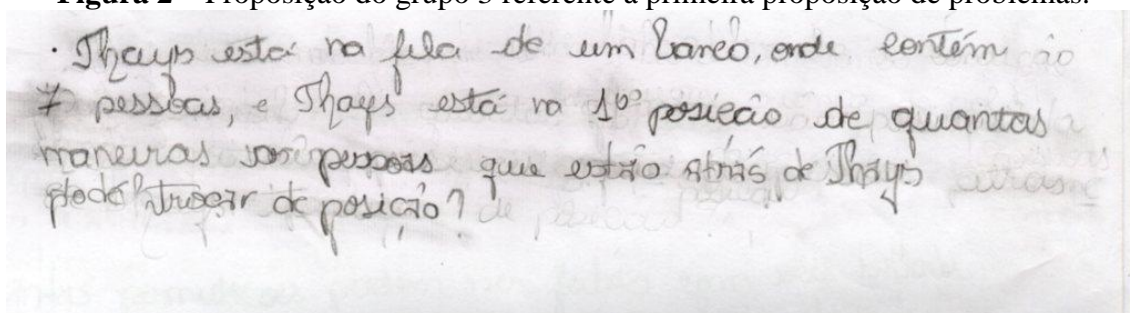 Figura 2 – Proposição do grupo 3 referente à primeira proposição de problemas.
· Thays está na fila de um banco, onde contém
7 pessoas, e Thays está na 1º posição de quantas
maneiras pessoas que estão atrás de Thays
pode trocar de posição?